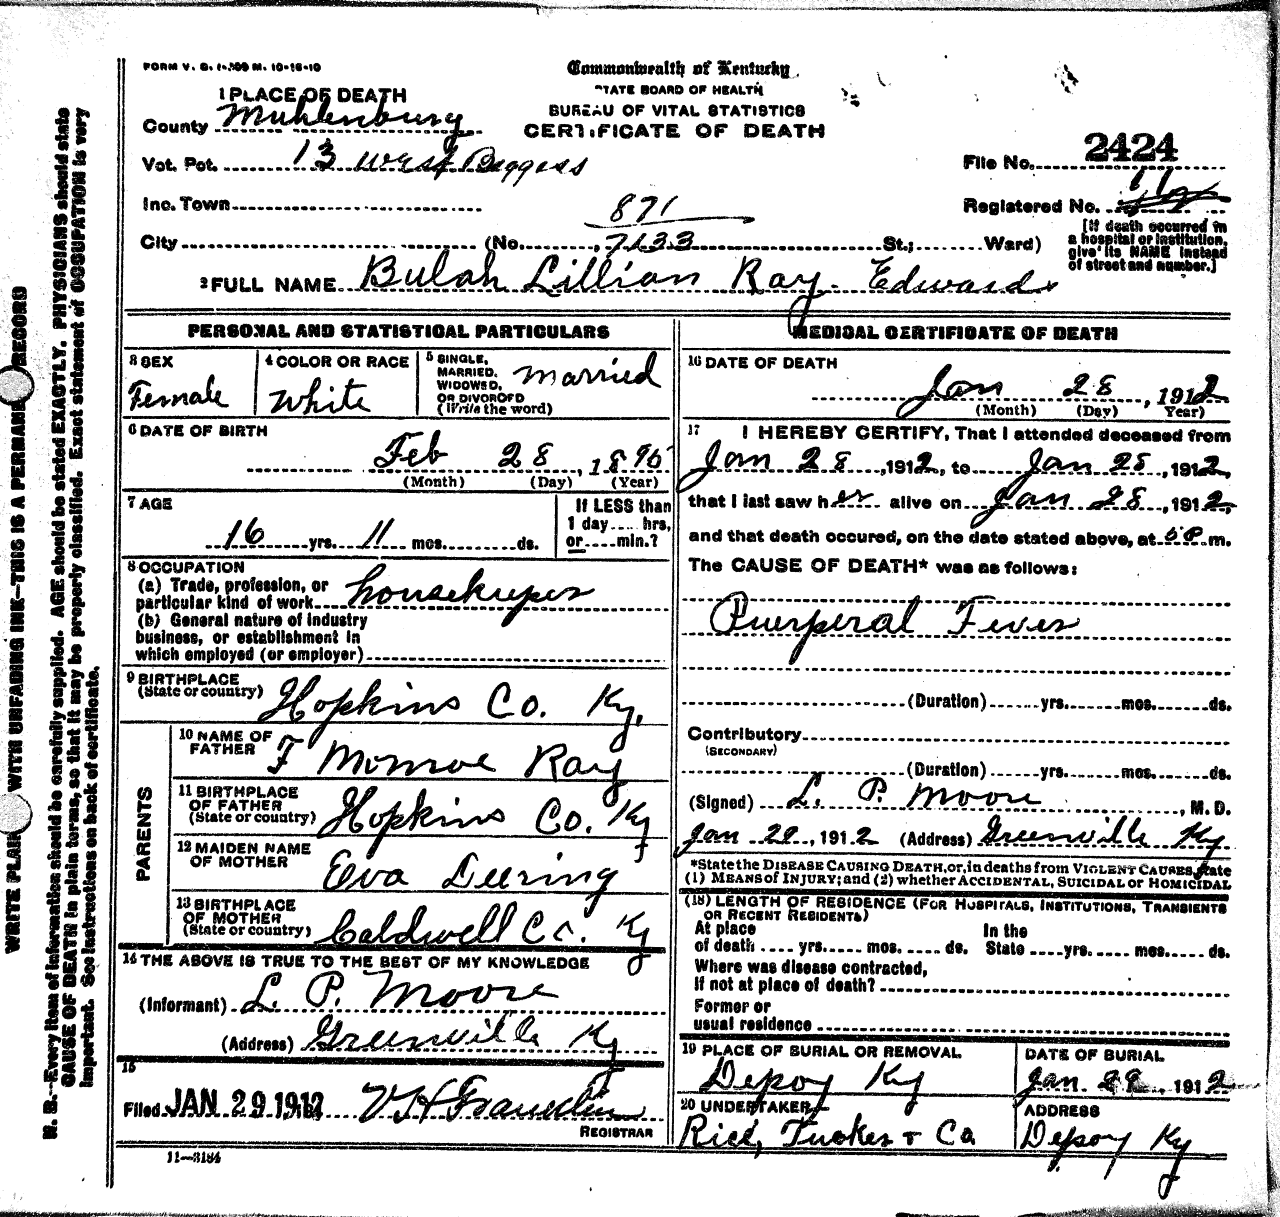 FORM V. S. 1-309 M. 10-16-10
Commonwealth of Kentucky
STATE BOARD OF HEALTH
BUREAU OF VITAL STATISTICS
CERTIFICATE OF DEATH
1 PLACE OF DEATH
County Muhlenburg
Vot. Pct. 13 West Boggess
Inc. Town
City (No. St.; Ward)
871
7133
File No. 2424
Registered No.
[If death occurred in
a hospital or institution,
give its NAME instead
of street and number.]
2 FULL NAME Bulah Lillian Ray Edwards
PERSONAL AND STATISTICAL PARTICULARS
3 SEX
Female
4 COLOR OR RACE
White
5 SINGLE,
MARRIED,
WIDOWED,
OR DIVORCED
(Write the word)
Married
6 DATE OF BIRTH
Feb 28, 1895
(Month) (Day) (Year)
7 AGE
16 yrs. 11 mos. ds.
If LESS than
1 day.... hrs.
or.....min.?
8 OCCUPATION
(a) Trade, profession, or
particular kind of work housekeeper
(b) General nature of industry
business, or establishment in
which employed (or employer)
9 BIRTHPLACE
(State or country) Hopkins Co. Ky.
PARENTS
10 NAME OF
FATHER F Monroe Ray
11 BIRTHPLACE
OF FATHER
(State or country) Hopkins Co. Ky
12 MAIDEN NAME
OF MOTHER Eva Deering
13 BIRTHPLACE
OF MOTHER
(State or country) Caldwell Co. Ky
14 THE ABOVE IS TRUE TO THE BEST OF MY KNOWLEDGE
(Informant) L. P. Moore
(Address) Greenville Ky
15
Filed JAN 29 1912 V H Franklin
REGISTRAR
11—3184
MEDICAL CERTIFICATE OF DEATH
16 DATE OF DEATH
Jan 28, 1912
(Month) (Day) Year)
17 I HEREBY CERTIFY, That I attended deceased from
Jan 28, 1912, to Jan 28, 1912,
that I last saw her alive on Jan 28, 1912,
and that death occured, on the date stated above, at 5 P m.
The CAUSE OF DEATH* was as follows:
Puerperal Fever
(Duration) yrs. mos. ds.
Contributory
(SECONDARY)
(Duration) yrs. mos. ds.
(Signed) L. P. Moore, M. D.
Jan 29, 1912 (Address) Greenville Ky
*State the DISEASE CAUSING DEATH, or, in deaths from VIOLENT CAUSES, state
(1) MEANS of INJURY; and (2) whether ACCIDENTAL, SUICIDAL or HOMICIDAL
(18) LENGTH OF RESIDENCE (FOR HOSPITALS, INSTITUTIONS, TRANSIENTS
OR RECENT RESIDENTS)
At place In the
of death .... yrs. mos. ds. State .... yrs. mos. ds.
Where was disease contracted,
If not at place of death?
Former or
usual residence
19 PLACE OF BURIAL OR REMOVAL
Depoy Ky
DATE OF BURIAL
Jan. 29, 1912
20 UNDERTAKER
Rice, Tucker + Co
ADDRESS
Depoy Ky
WRITE PLAINLY WITH UNFADING INK—THIS IS A PERMANENT RECORD
N. B.—Every item of information should be carefully supplied. AGE should be stated EXACTLY. PHYSICIANS should state
CAUSE OF DEATH in plain terms, so that it may be properly classified. Exact statement of OCCUPATION is very
important. See instructions on back of certificate.